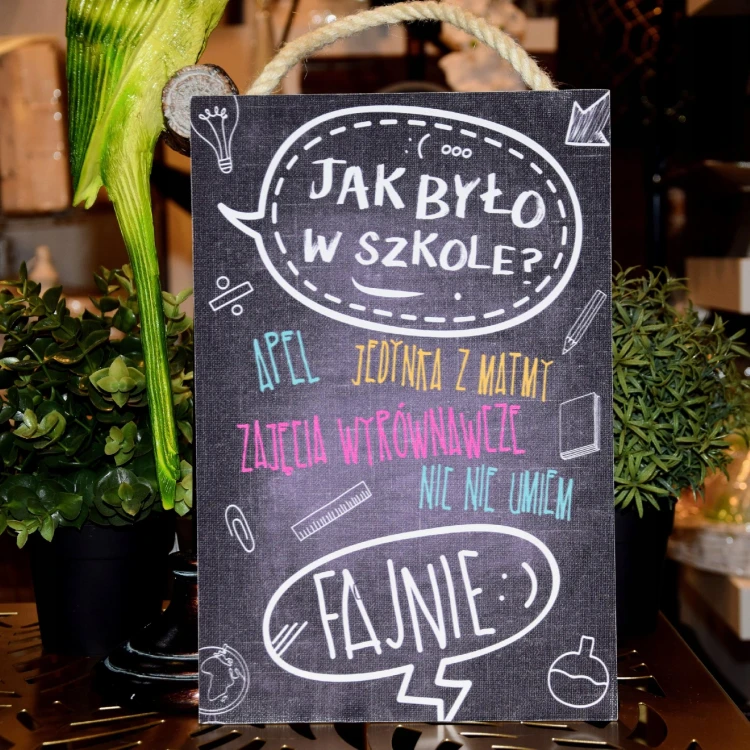 :( ooo
JAK BYŁO
W SZKOLE?
APEL JEDYNKA Z MATMY
ZAJĘCIA WYRÓWNAWCZE
NIC NIE UMIEM
FAJNIE :)